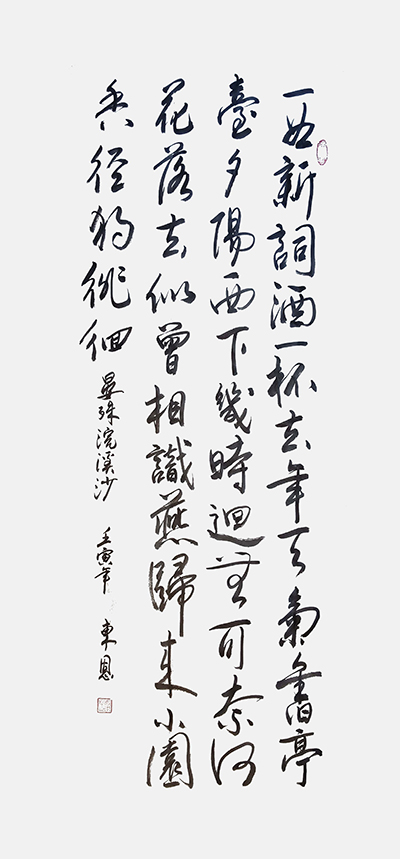 一曲新詞酒一杯去年天氣舊亭
臺夕陽西下幾時迴無可奈何
花落去似曾相識燕歸來小園
香徑獨徘徊 晏殊浣溪沙 壬寅年 東恩